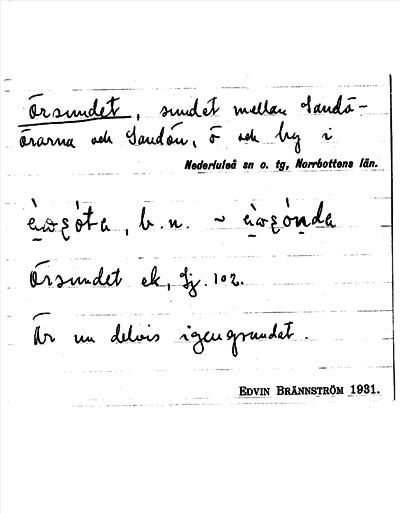 Örsundet, sundet mellan Sandö-
örarna och Sandön, ö och by i
Nederluleå sn o. tg, Norrbottens län.
, b. n. ~
Örsundet ek, Sj. 102.
Är nu delvis igengrundat.
EDVIN BRÄNNSTRÖM 1931.